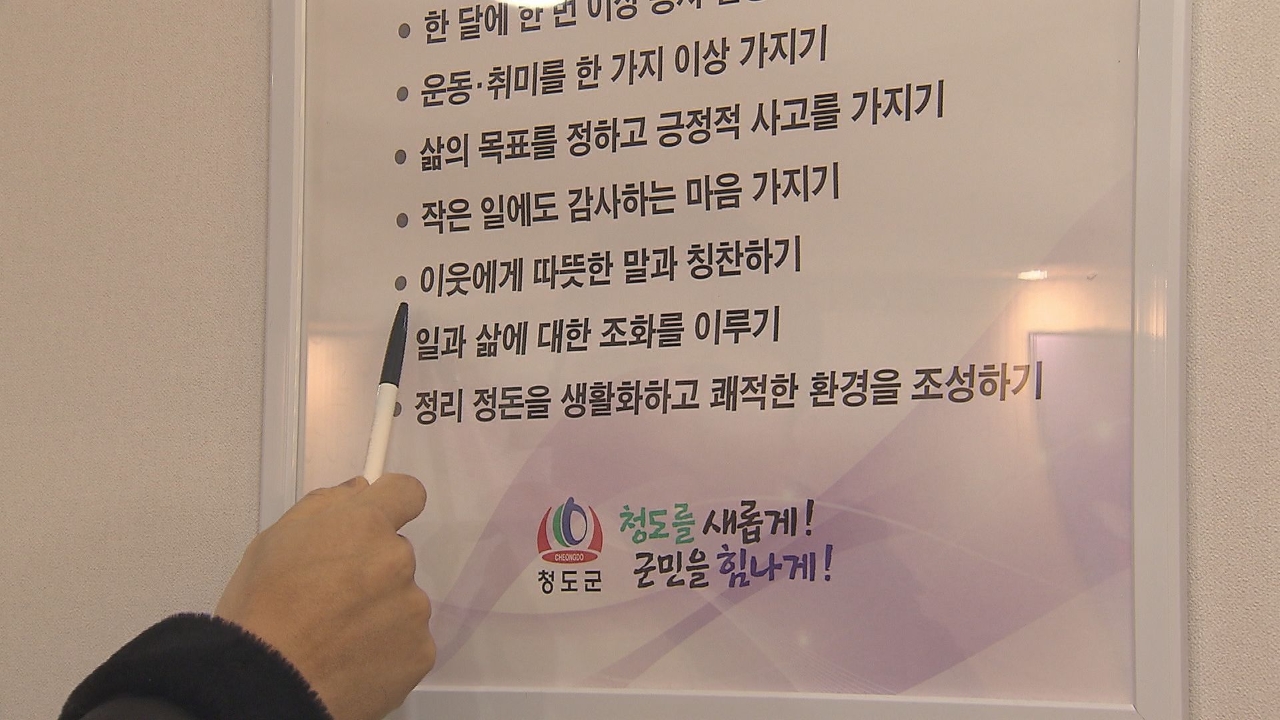 한 달에 한 번 이상
운동·취미를 한 가지 이상 가지기
삶의 목표를 정하고 긍정적 사고를 가지기
작은 일에도 감사하는 마음 가지기
이웃에게 따뜻한 말과 칭찬하기
일과 삶에 대한 조화를 이루기
정리 정돈을 생활화하고 쾌적한 환경을 조성하기
청도를 새롭게!
군민을 힘나게!
CHEONGDO
청도군